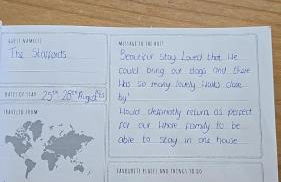 GUEST NAME(S)
The Staffords
DATES OF STAY 25th 28th August
TRAVELED FROM
MESSAGE TO THE HOST
Beautiful Stay Loved that We
could bring our dogs and there
Was so many lovely Walks close
by!
Would definatly return as perfect
for our Whole family to be
able to stay in one house
FAVOURITE PLACES AND THINGS TO DO